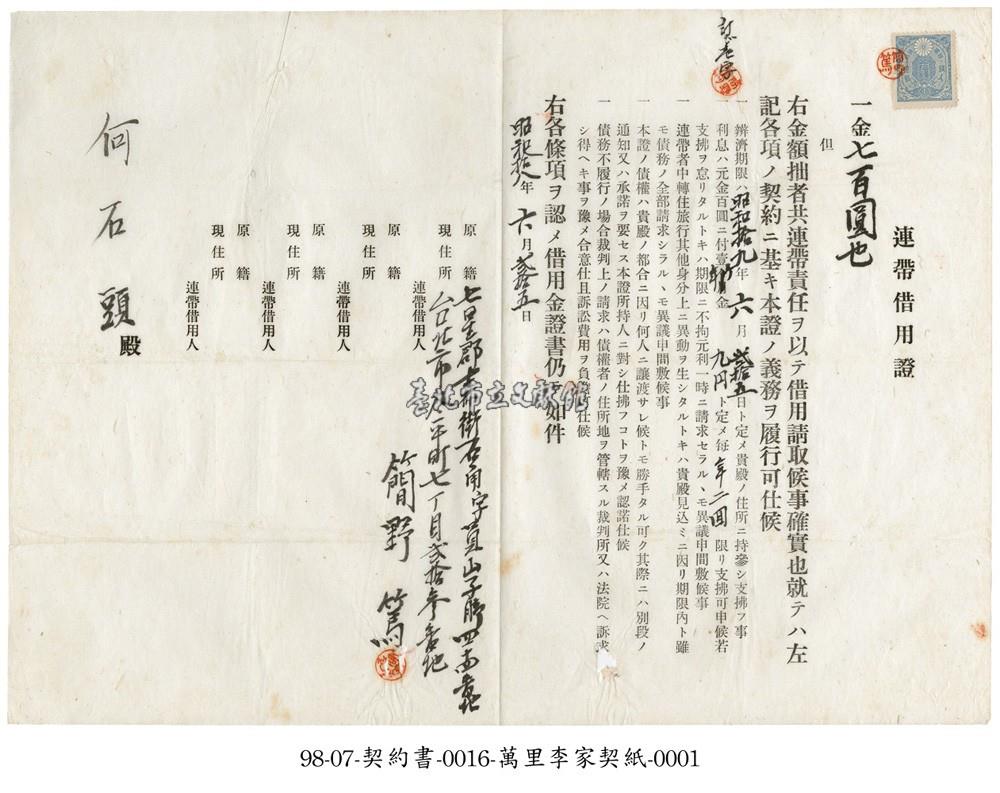 連帶借用證
一金七百圓也
但
右金額拙者共連帶責任ヲ以テ借用請取候事確實也就テハ左
記各項ノ契約ニ基キ本證ノ義務ヲ履行可仕候
訂壱字
一 辨濟期限ハ昭和拾九年六月弐拾五日ト定メ貴殿ノ住所ニ持參シ支拂フ事
利息ハ元金百圓ニ付壹 金九円ト定メ每年二回限リ支拂可申候若
支拂ヲ怠リタルトキハ期限ニ不拘元利一時ニ請求セラルヽモ異議申間敷候事
一 連帶者中轉住旅行其他身分上ニ異動ヲ生シタルトキハ貴殿見込ミニ因リ期限內ト雖
モ債務ノ全部請求シラルヽモ異議申間敷候事
一 本證ノ債權ハ貴殿ノ都合ニ因リ何人ニ讓渡サレ候トモ勝手タル可ク其際ニハ別段ノ
通知又ハ承諾ヲ要セス本證所持人ニ對シ仕拂フコトヲ豫メ認諾仕候
一 債務不履行ノ場合裁判上ノ請求ハ債權者ノ住所地ヲ管轄スル裁判所又ハ法院ヘ訴求
シ得ヘキ事ヲ豫メ合意仕且訴訟費用ヲ負 仕候
右各條項ヲ認メ借用金證書仍 如件
昭和拾八年六月弐拾五日
原籍 七星郡士林街石角字 山子脚四 番地
現住所 台北市太平町七丁目弐拾参番地
連帶借用人 簡野篤
原籍
現住所
連帶借用人
原籍
現住所
連帶借用人
原籍
現住所
連帶借用人
何石頭殿
臺北市立文獻館
98-07-契約書-0016-萬里李家契紙-0001